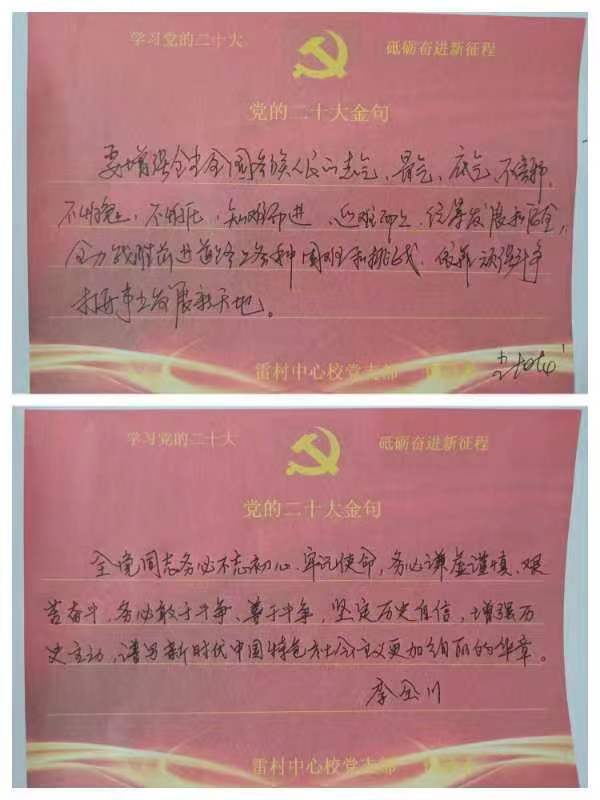 学习党的二十大
砥砺奋进新征程
党的二十大金句
要增强全党全国各族人民的志气、骨气、底气,不信邪、
不怕鬼、不怕压,知难而进、迎难而上,统筹发展和安全,
全力战胜前进道路上各种困难和挑战,依靠顽强斗争
打开事业发展新天地。
雷村中心校党支部
学习党的二十大
砥砺奋进新征程
党的二十大金句
全党同志务必不忘初心、牢记使命,务必谦虚谨慎、艰
苦奋斗,务必敢于斗争、善于斗争,坚定历史自信,增强历
史主动,谱写新时代中国特色社会主义更加绚丽的华章。
李全川
雷村中心校党支部